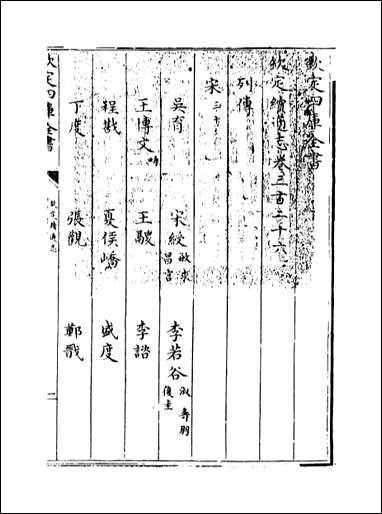 欽定四庫全書
欽定續通志卷三百三十六
列傳
宋三十
吳育 宋綬 敏求 昌言 李若谷 淑 壽朋 復圭
王博文 疇 王鬷 李諮
程戡 夏侯嶠 盛度
丁度 張觀 鄭戩
欽定四庫全書 欽定續通志